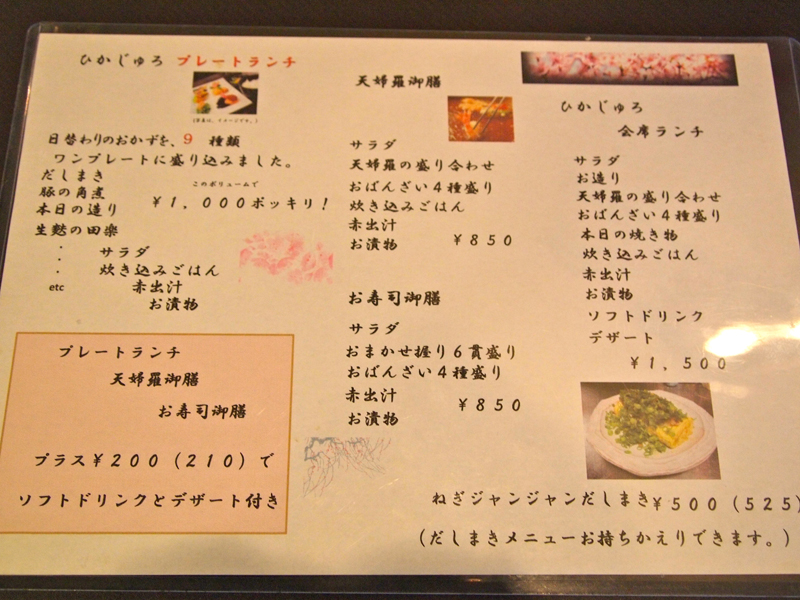 ひかじゅろ プレートランチ
日替わりのおかずを、9 種類
ワンプレートに盛り込みました。
だしまき
豚の角煮
このボリュームで
本日の造り
¥1,000ポッキリ!
生麩の田楽
・ サラダ
・ 炊き込みごはん
・
etc 赤出汁
お漬物
プレートランチ
天婦羅御膳
お寿司御膳
プラス¥200(210)で
ソフトドリンクとデザート付き
天婦羅御膳
サラダ
天婦羅の盛り合わせ
おばんざい4種盛り
炊き込みごはん
赤出汁
お漬物 ¥850
お寿司御膳
サラダ
おまかせ握り6貫盛り
おばんざい4種盛り
赤出汁
お漬物 ¥850
ひかじゅろ
会席ランチ
サラダ
お造り
天婦羅の盛り合わせ
おばんざい4種盛り
本日の焼き物
炊き込みごはん
赤出汁
お漬物
ソフトドリンク
デザート
¥1,500
ねぎジャンジャンだしまき¥500(525)
(だしまきメニューお持ちかえりできます。)